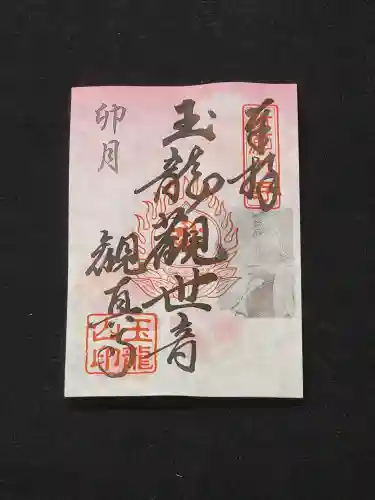 奉拝
玉龍観世音
卯月
観真寺
玉龍
山印